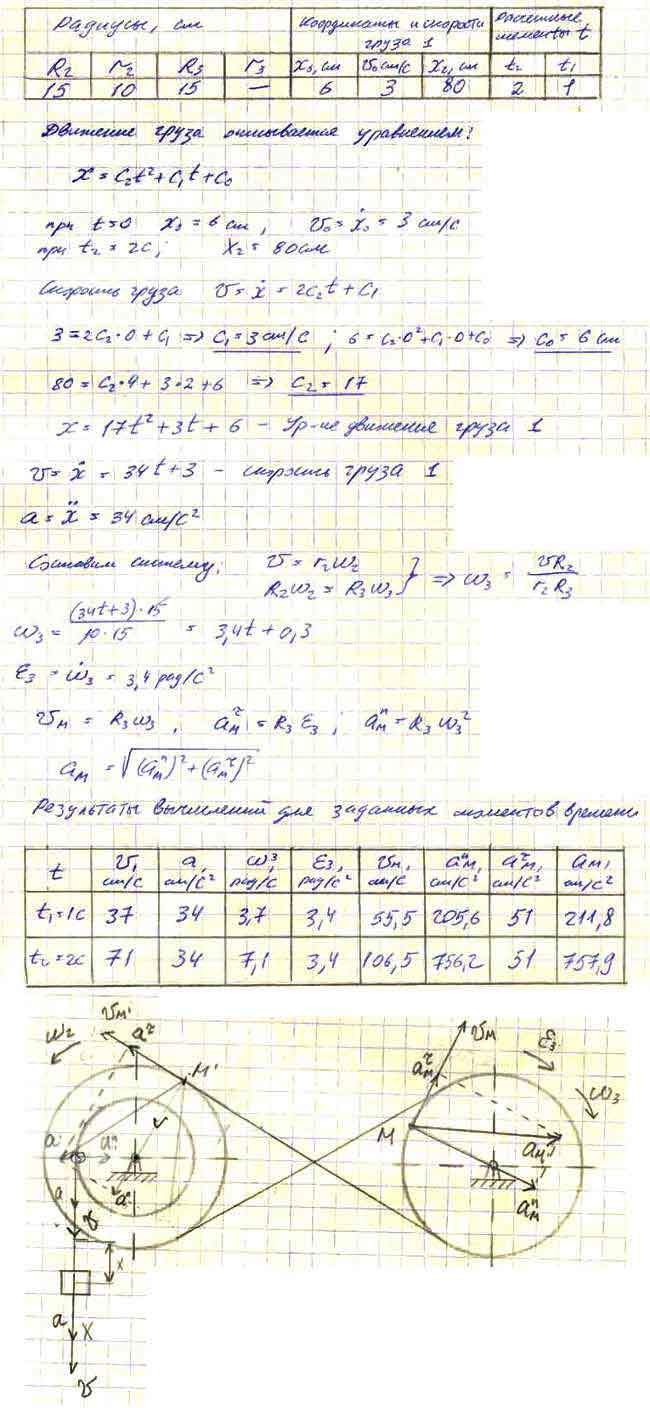 Радиусы, см Координаты и скорости груза 1 Расчетные моменты t
R₂ r₂ R₃ r₃ x₀, см v₀ см/с x₂, см t₂ t₁
15 10 15 — 6 3 80 2 1
Движение груза описывается уравнением:
x = C₂t² + C₁t + C₀
при t=0 x₀ = 6 см, v₀ = ẋ₀ = 3 см/с
при t₂ = 2с; x₂ = 80см
Скорость груза v = ẋ = 2C₂t + C₁
3 = 2C₂·0 + C₁ => C₁ = 3 см/с ; 6 = C₂·0² + C₁·0 + C₀ => C₀ = 6 см
80 = C₂·4 + 3·2 + 6 => C₂ = 17
x = 17t² + 3t + 6 – Ур-ие движения груза 1
v = ẋ = 34t + 3 – скорость груза 1
a = ẍ = 34 см/с²
Составим систему: v = r₂ω₂
R₂ω₂ = R₃ω₃ } => ω₃ = vR₂ / r₂R₃
ω₃ = (34t+3)·15 / 10·15 = 3,4t + 0,3
ε₃ = ω̇₃ = 3,4 рад/с²
vм = R₃ω₃ , aᵗм = R₃ε₃ ; aⁿм = R₃ω₃²
aм = √(aⁿм)² + (aᵗм)²
Результаты вычислений для заданных моментов времени
t v, см/с a, см/с² ω₃, рад/с ε₃, рад/с² vм, см/с aⁿм, см/с² aᵗм, см/с² aм, см/с²
t₁=1с 37 34 3,7 3,4 55,5 205,6 51 211,8
t₂=2с 71 34 7,1 3,4 106,5 756,2 51 757,9
vм' vм
ω₂ aᵗ aᵗм ε₃
M' ω₃
M
a aм
aⁿ aⁿм
a
v
x
a X
v